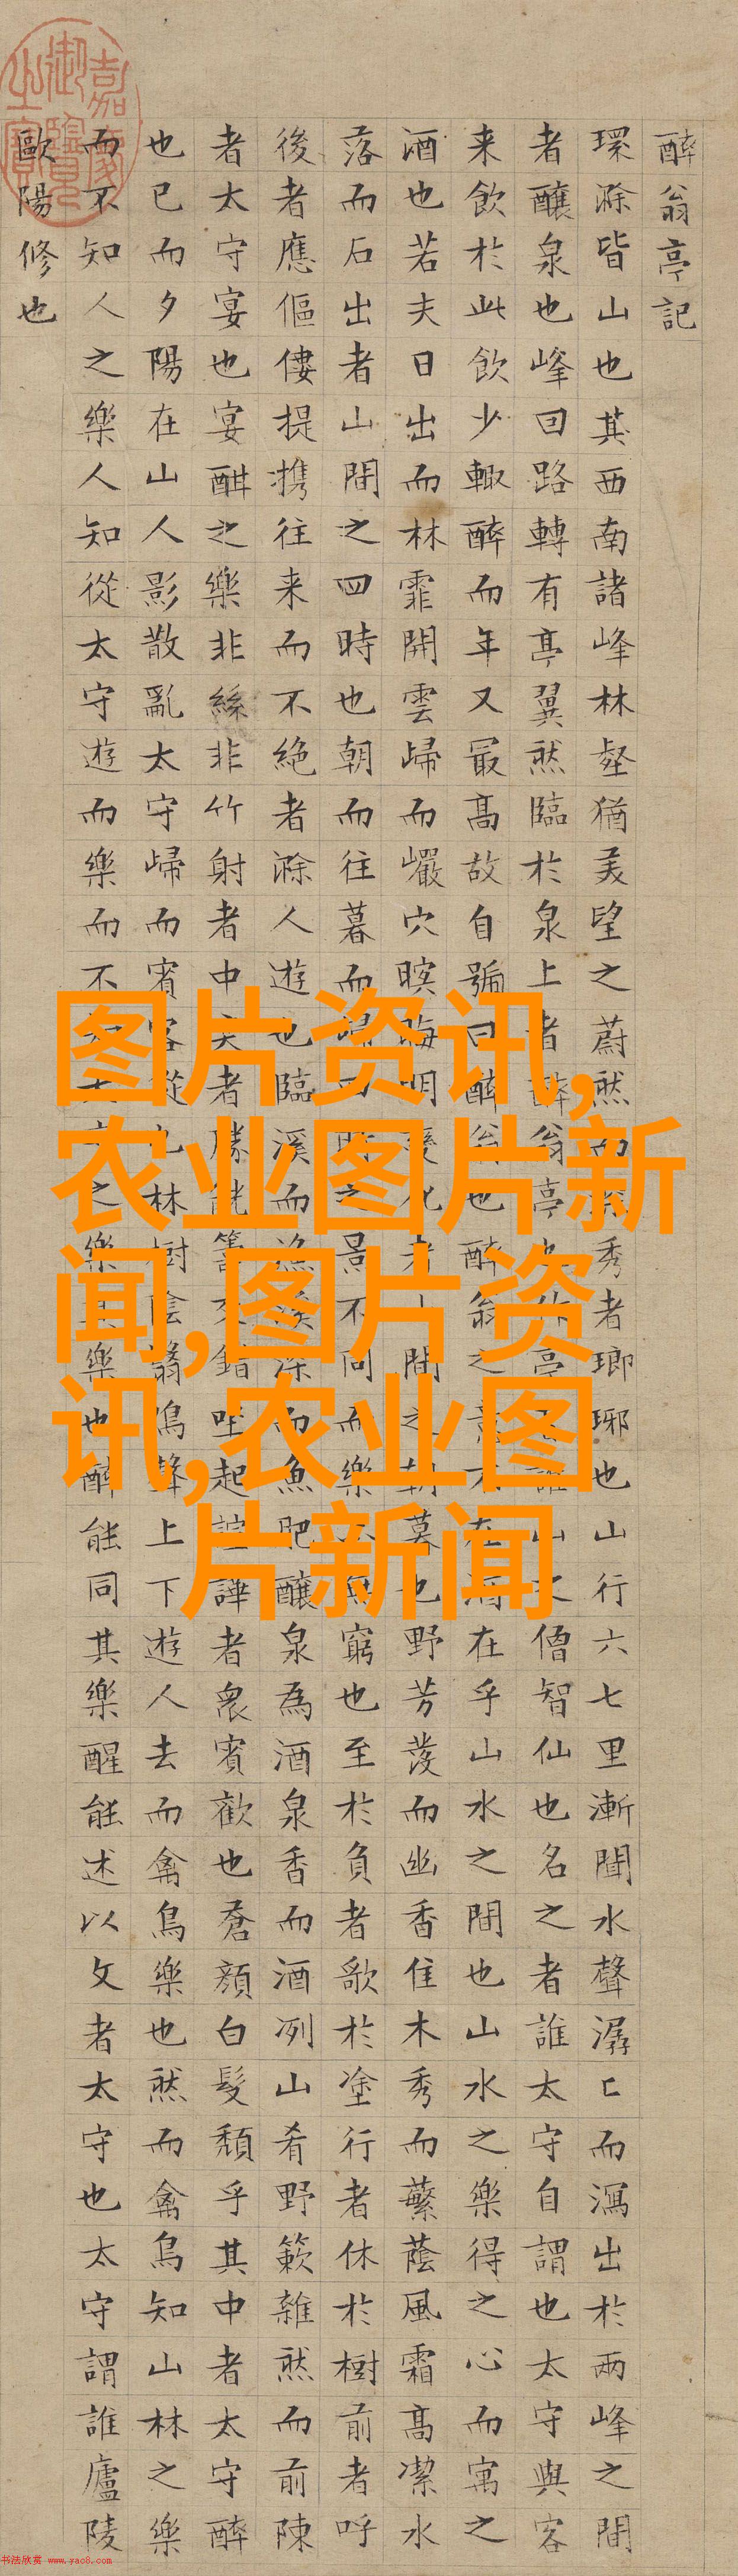 醉翁亭記
環滁皆山也其西南諸峰林壑猶美望之蔚然而深秀者瑯琊也山行六七里漸聞水聲潺〻而瀉出於兩峰之間
者釀泉也峰回路轉有亭翼然臨於泉上者醉翁亭也作亭者誰山之僧智仙也名之者誰太守自謂也太守與客
来飲於此飲少輒醉而年又最高故自號曰醉翁也醉翁之意不在酒在乎山水之間也山水之樂得之心而寓之
酒也若夫日出而林霏開雲歸而巖穴暝晦明變化者山間之朝暮也野芳發而幽香佳木秀而蘩蔭風霜高潔水
落而石出者山間之四時也朝而往暮而歸四時之景不同而樂亦無窮也至於負者歌於塗行者休於樹前者呼
後者應傴僂提攜往来而不絶者滁人遊也臨溪而漁溪深而魚肥釀泉為酒泉香而酒冽山肴野簌雜然而前陳
者太守宴也宴酣之樂非絲非竹射者中奕者勝觥籌交錯坐起諠譁者衆賓歡也蒼顏白髮頹乎其中者太守醉
也已而夕陽在山人影散亂太守歸而賓客從也林樹陰翳鳴聲上下遊人去而禽鳥樂也然而禽鳥知山林之樂
而不知人之樂人知從太守遊而樂而不知太守之樂其樂也醉能同其樂醒能述以文者太守也太守謂誰廬陵
歐陽修也
嘉慶御覽之寶
图片资讯,
农业图片新
闻,图片资
讯,农业图
片新闻
书法欣赏 www.yac8.com